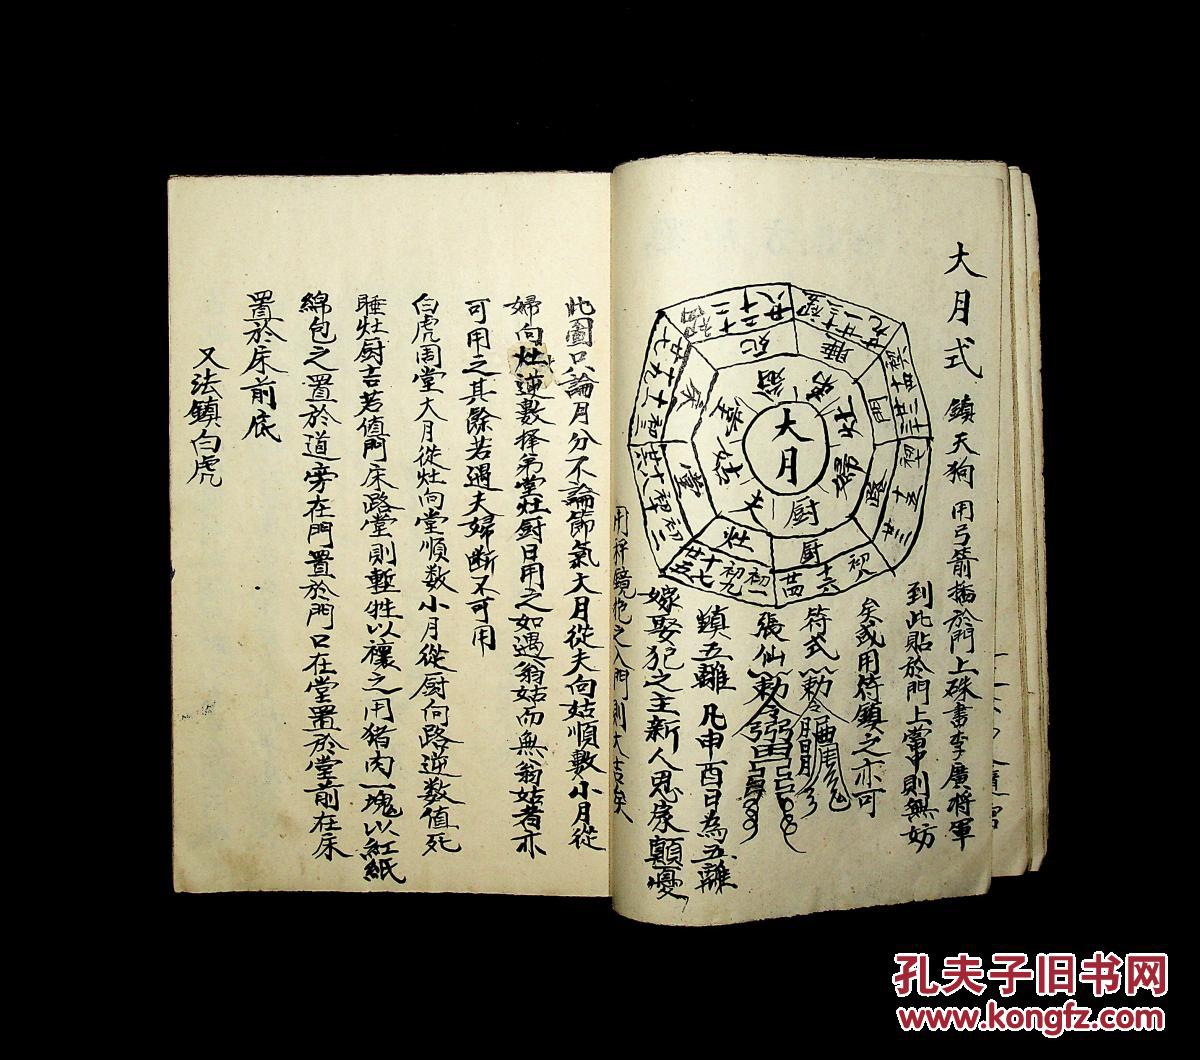 大月式
鎮天狗用弓箭插於門上硃畫李廣將軍
到此貼於門上當中則無妨
矣或用符鎮之亦可
符式
張仙
鎮五離凡申酉日為五離
嫁娶犯之主新人思家顛憂
大月
夫
姑
堂
翁
弟
灶
婦
厨
厨
初八
十六
廿四
灶
初一
初九
十七
廿五
堂
床
死
睡
門
路
此圖只論月分不論節氣大月從夫向姑順數小月從
婦向灶逆數擇弟堂灶厨日用之如遇翁姑而無翁姑者亦
可用之其餘若遇夫婦斷不可用
白虎周堂大月從灶向堂順数小月從厨向路逆数值死
睡灶厨吉若值門床路堂則暫牲以禳之用猪肉一塊以紅紙
綿包之置於道旁在門置於門口在堂置於堂前在床
置於床前底
又法鎮白虎
孔夫子旧书网
www.kongfz.com